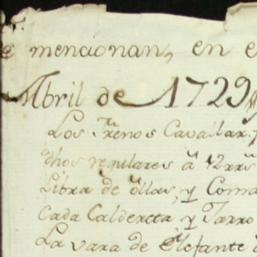 mencionan, en e
Abril de 1729
Los frenos Cavallar.
dhos regulares á 12 rrs
Libra de ollas, y Coma
Cada Caldereta y Jarro
La vara de Elefante